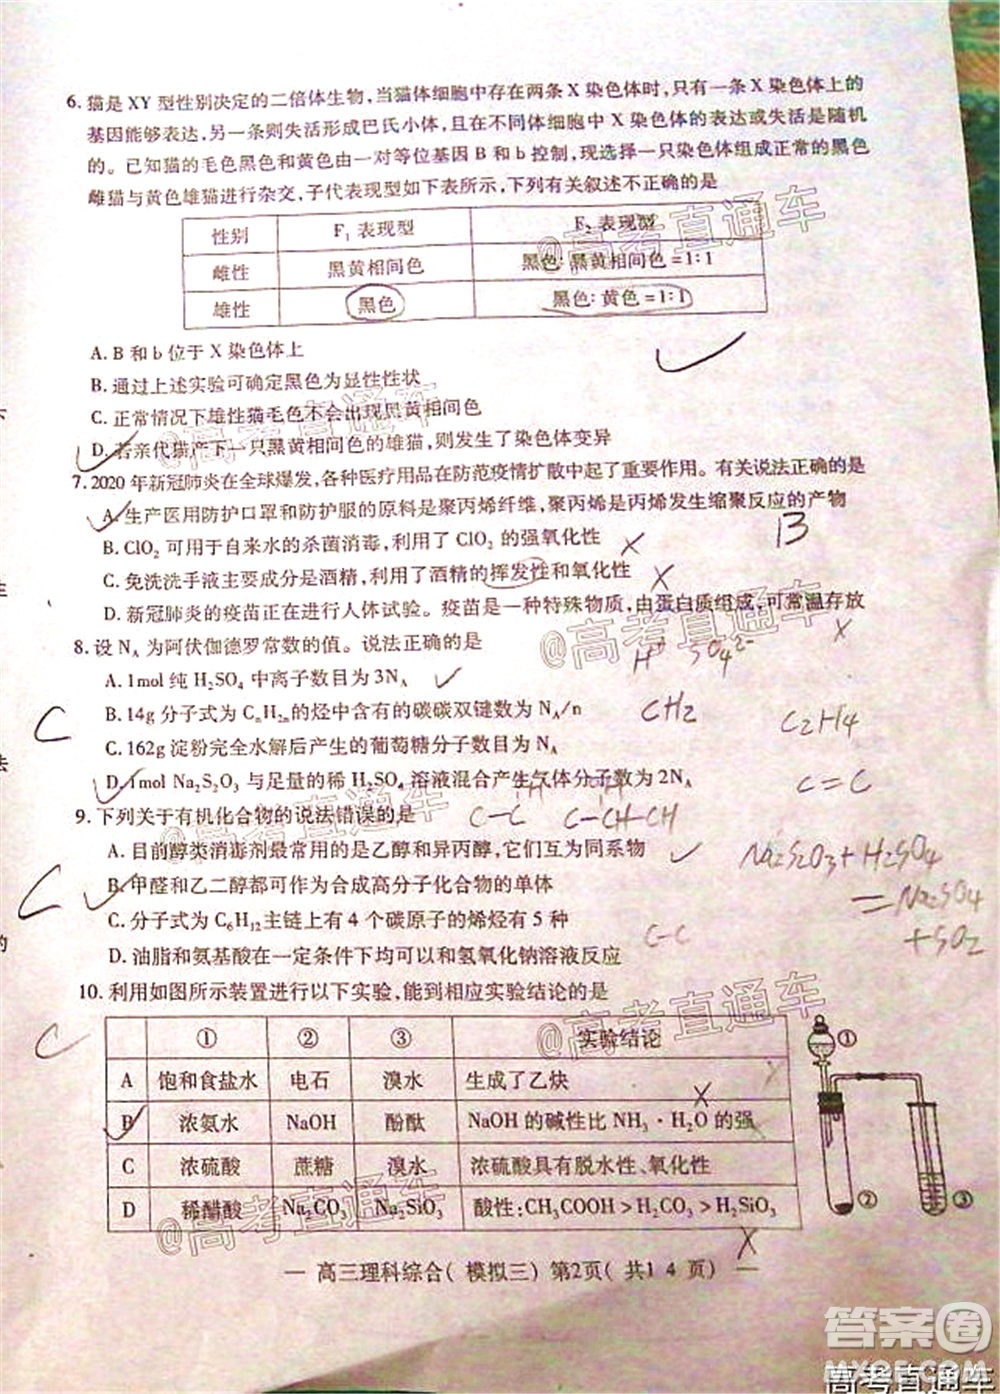 6. 猫是 XY 型性别决定的二倍体生物,当猫体细胞中存在两条 X 染色体时,只有一条 X 染色体上的
基因能够表达,另一条则失活形成巴氏小体,且在不同体细胞中 X 染色体的表达或失活是随机
的。已知猫的毛色黑色和黄色由一对等位基因 B 和 b 控制,现选择一只染色体组成正常的黑色
雌猫与黄色雄猫进行杂交,子代表现型如下表所示,下列有关叙述不正确的是
性别 F₁ 表现型 F₂ 表现型
雌性 黑黄相间色 黑色: 黑黄相间色 =1:1
雄性 黑色 黑色: 黄色 =1:1
@高考直通车
A. B 和 b 位于 X 染色体上
B. 通过上述实验可确定黑色为显性性状
C. 正常情况下雄性猫毛色不会出现黑黄相间色
D. 若亲代猫产下一只黑黄相间色的雄猫,则发生了染色体变异
@高考直通车
7. 2020 年新冠肺炎在全球爆发,各种医疗用品在防范疫情扩散中起了重要作用。有关说法正确的是
A. 生产医用防护口罩和防护服的原料是聚丙烯纤维,聚丙烯是丙烯发生缩聚反应的产物
B
B. ClO₂ 可用于自来水的杀菌消毒,利用了 ClO₂ 的强氧化性
X
C. 免洗洗手液主要成分是酒精,利用了酒精的挥发性和氧化性
X
D. 新冠肺炎的疫苗正在进行人体试验。疫苗是一种特殊物质,由蛋白质组成,可常温存放
X
@高考直通车
8. 设 Nᴀ 为阿伏伽德罗常数的值。说法正确的是
H⁺ SO₄²⁻
A. 1mol 纯 H₂SO₄ 中离子数目为 3Nᴀ
B. 14g 分子式为 CₙH₂ₙ 的烃中含有的碳碳双键数为 Nᴀ/n
C
CH₂
C₂H₄
C. 162g 淀粉完全水解后产生的葡萄糖分子数目为 Nᴀ
D. 1mol Na₂S₂O₃ 与足量的稀 H₂SO₄ 溶液混合产生气体分子数为 2Nᴀ
C=C
@高考直通车
9. 下列关于有机化合物的说法错误的是
C-C
C-CH-CH
A. 目前醇类消毒剂最常用的是乙醇和异丙醇,它们互为同系物
Na₂S₂O₃+H₂SO₄
B. 甲醛和乙二醇都可作为合成高分子化合物的单体
C
=Na₂SO₄
C. 分子式为 C₆H₁₂主链上有 4 个碳原子的烯烃有 5 种
C-C
+SO₂
D. 油脂和氨基酸在一定条件下均可以和氢氧化钠溶液反应
10. 利用如图所示装置进行以下实验,能到相应实验结论的是
@高考直通车
C
① ② ③ 实验结论
A 饱和食盐水 电石 溴水 生成了乙炔
X
B 浓氨水 NaOH 酚酞 NaOH 的碱性比 NH₃·H₂O 的强
X
C 浓硫酸 蔗糖 溴水 浓硫酸具有脱水性、氧化性
D 稀醋酸 Na₂CO₃ Na₂SiO₃ 酸性:CH₃COOH>H₂CO₃>H₂SiO₃
X
@高考直通车
① ② ③
— 高三理科综合( 模拟三) 第2页( 共1 4 页) —
答案圈
MXQE.COM
高考直通车